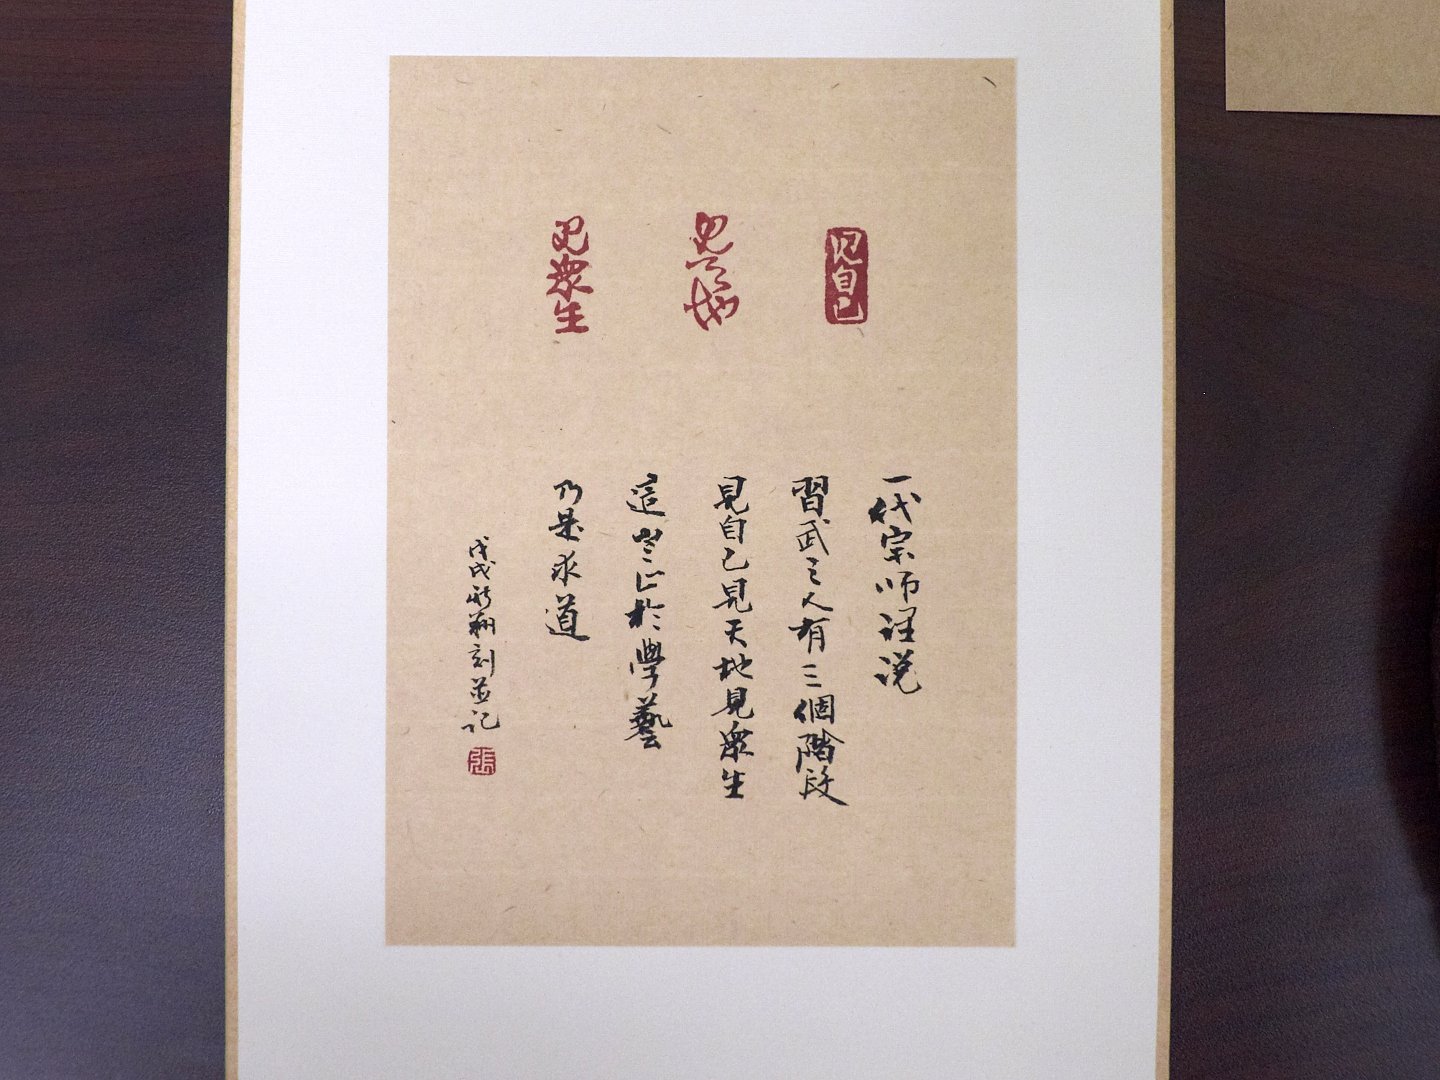 見自己
見天地
見衆生
一代宗师裡说
習武之人有三個階段
見自己見天地見衆生
這豈止於學藝
乃是求道
戊戌 翔刻並记
張